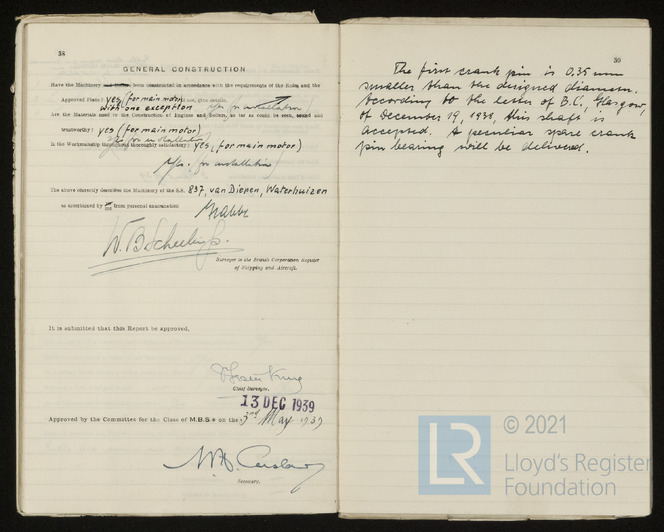 38
GENERAL CONSTRUCTION
Have the Machinery been constructed in accordance with the requirements of the Rules and the
Approved Plans? yes (for main motor) if not, give details.
With one exception yes for installation
Are the Materials used in the Construction of Engines and Boilers, so far as could be seen, sound and
trustworthy? yes (for main motor)
yes for installation
Is the Workmanship throughout thoroughly satisfactory? yes (for main motor)
Yes. for installation
The above correctly describes the Machinery of the S.S. 837, van Diepen, Waterhuizen
as ascertained by from personal examination
Surveyor to the British Corporation Register
of Shipping and Aircraft.
It is submitted that this Report be approved,
Chief Surveyor.
13 DEC 1939
Approved by the Committee for the Class of M.B.S.* on the 3rd May 1939
Secretary.
39
The first crank pin is 0,35 mm
smaller than the designed diameter.
According to the letter of B.C., Glasgow,
of December 19, 1938, this shaft is
accepted. A peculiar spare crank
pin bearing will be delivered.
LR
© 2021
Lloyd's Register
Foundation